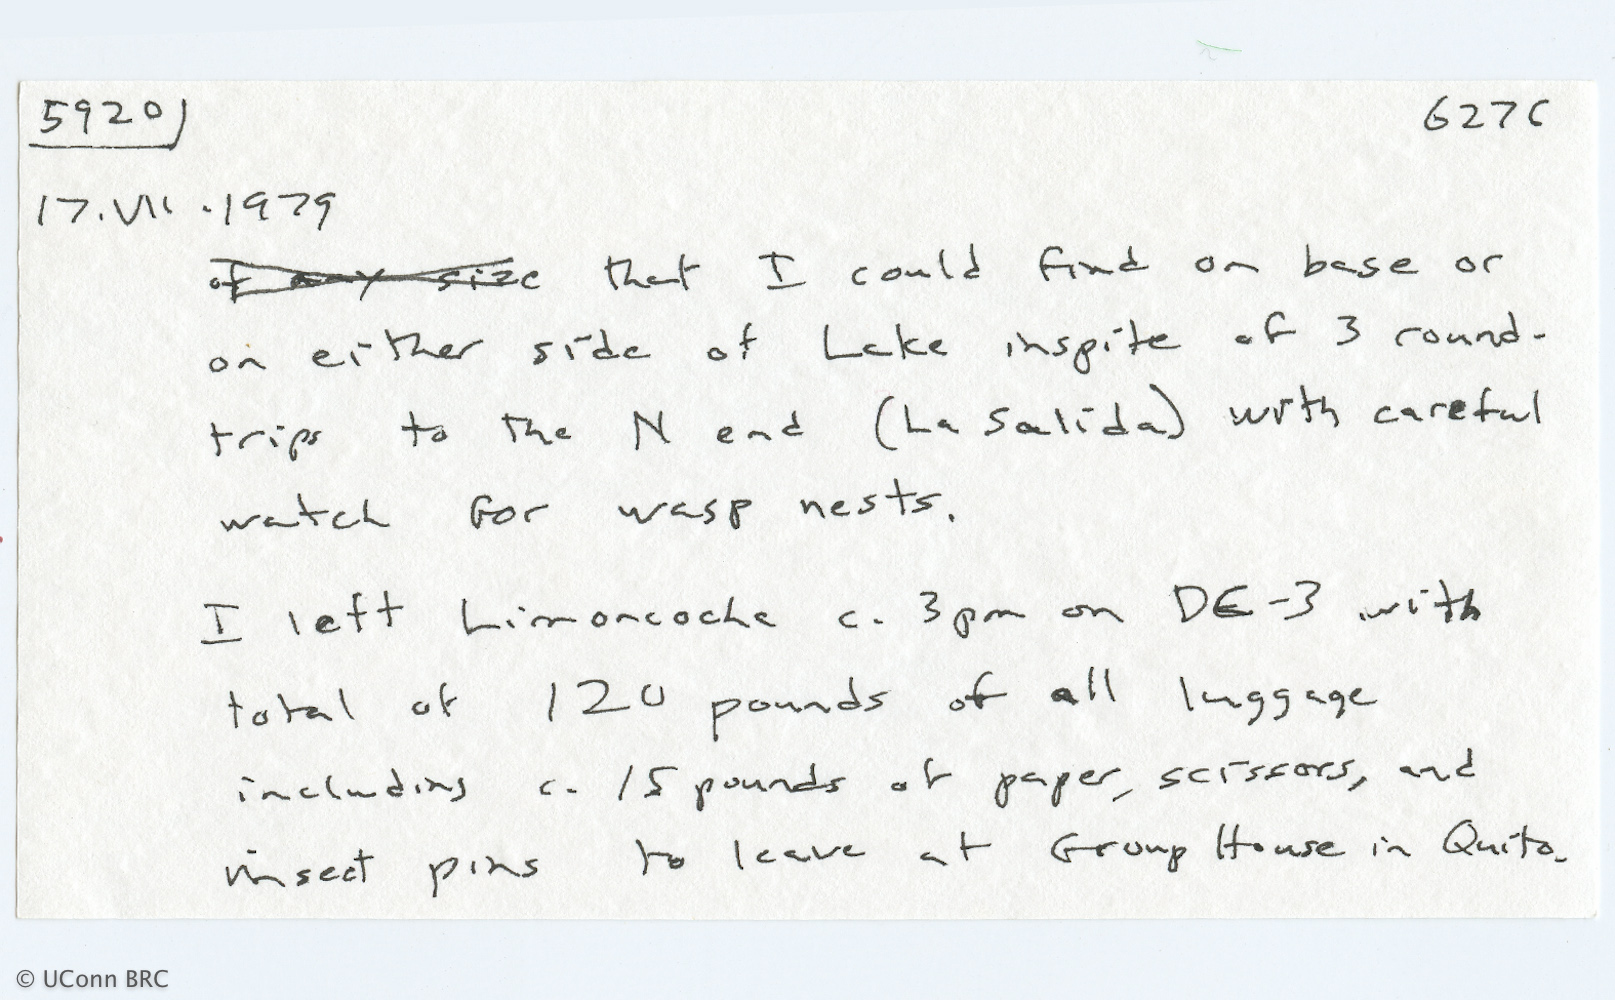 5920)
6276
17.VII.1979
of any size that I could find on base or
on either side of Lake inspite of 3 round-
trips to the N end (La Salida) with careful
watch for wasp nests.
I left Limoncocha c. 3pm on DC-3 with
total of 120 pounds of all luggage
including c. 15 pounds of paper, scissors, and
insect pins to leave at Group House in Quito.
© UConn BRC